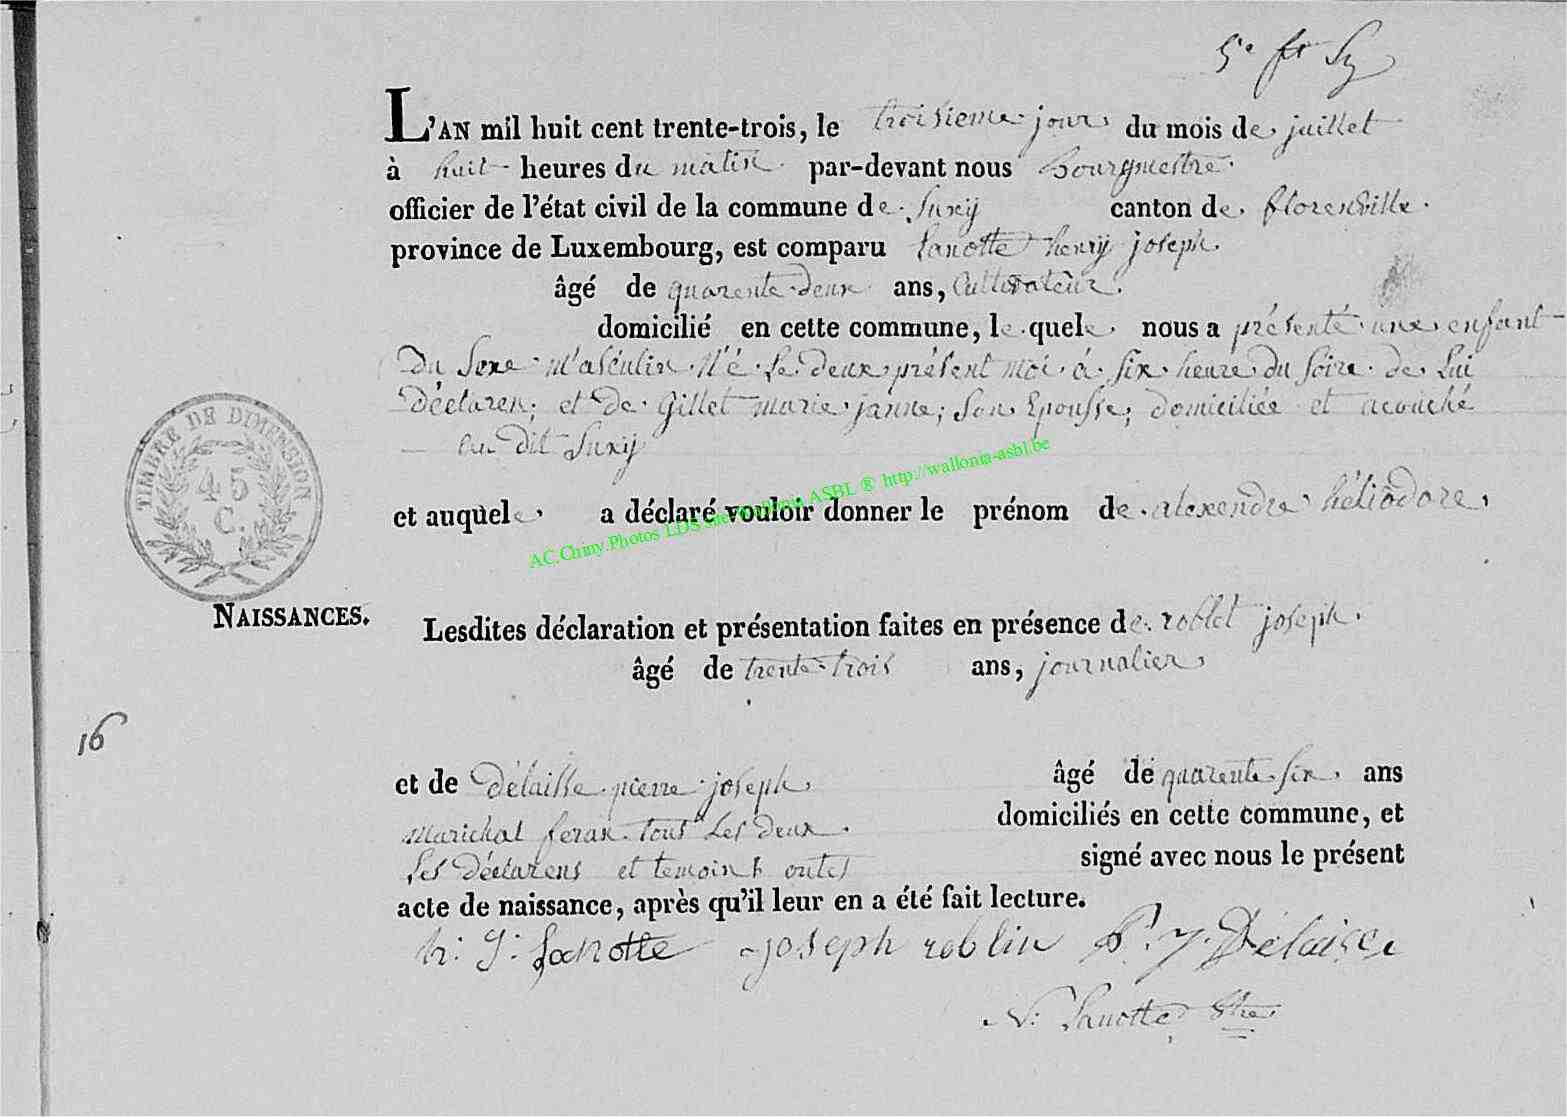 5e ft Sy
L'AN mil huit cent trente-trois, le troisieme jour du mois de juillet
à huit heures du matin par-devant nous Bourgmestre
officier de l'état civil de la commune de Suxy canton de florenville
province de Luxembourg, est comparu Lanotte henry joseph
âgé de quarente deux ans, Cultivateur
domicilié en cette commune, le quele nous a présenté une enfant
du Sexe masculin Né Le deux présent moi à six heure du Soire de Lui
Déclaren; et de Gillet marie janne; Son Epousse; domiciliée et acouché
au dit Suxy
TIMBRE DE DIMENSION
45
C.
et auquele a déclaré vouloir donner le prénom de alexendre héliodore
AC.Chiny.Photos LDS site Wallonia ASBL ® http://wallonia-asbl.be
NAISSANCES.
Lesdites déclaration et présentation faites en présence de roblet joseph
âgé de trente trois ans, journalier
16
et de Délaisse pierre joseph âgé de quarente six ans
marichal feran tous Les deux domiciliés en cette commune, et
Les Déclarens et temoins ontes signé avec nous le présent
acte de naissance, après qu'il leur en a été fait lecture.
h: J: Lanotte joseph roblin P. J. Délaisse
N: Lanotte Btre